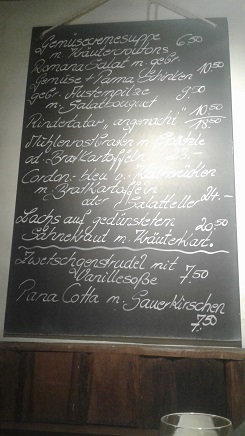 Gemüsecremesuppe
m. Kräutercroutons 6,50
Romana Salat m. gebr.
Gemüse + Parma Schinken 10,50
gebr. Austernpilze 9,50
m. Salatbouquet
Rindertatar "angemacht" 10,50
18,50
od. Bratkartoffeln
Cordon-bleu v.
m. Bratkartoffeln
oder Salatteller 24.-
Lachs auf gedünstetem 20,50
Sahnekraut m. Kräuterkart.
Zwetschgenstrudel mit
Vanillesoße 7,50
Pana Cotta m. Sauerkirschen
7,50